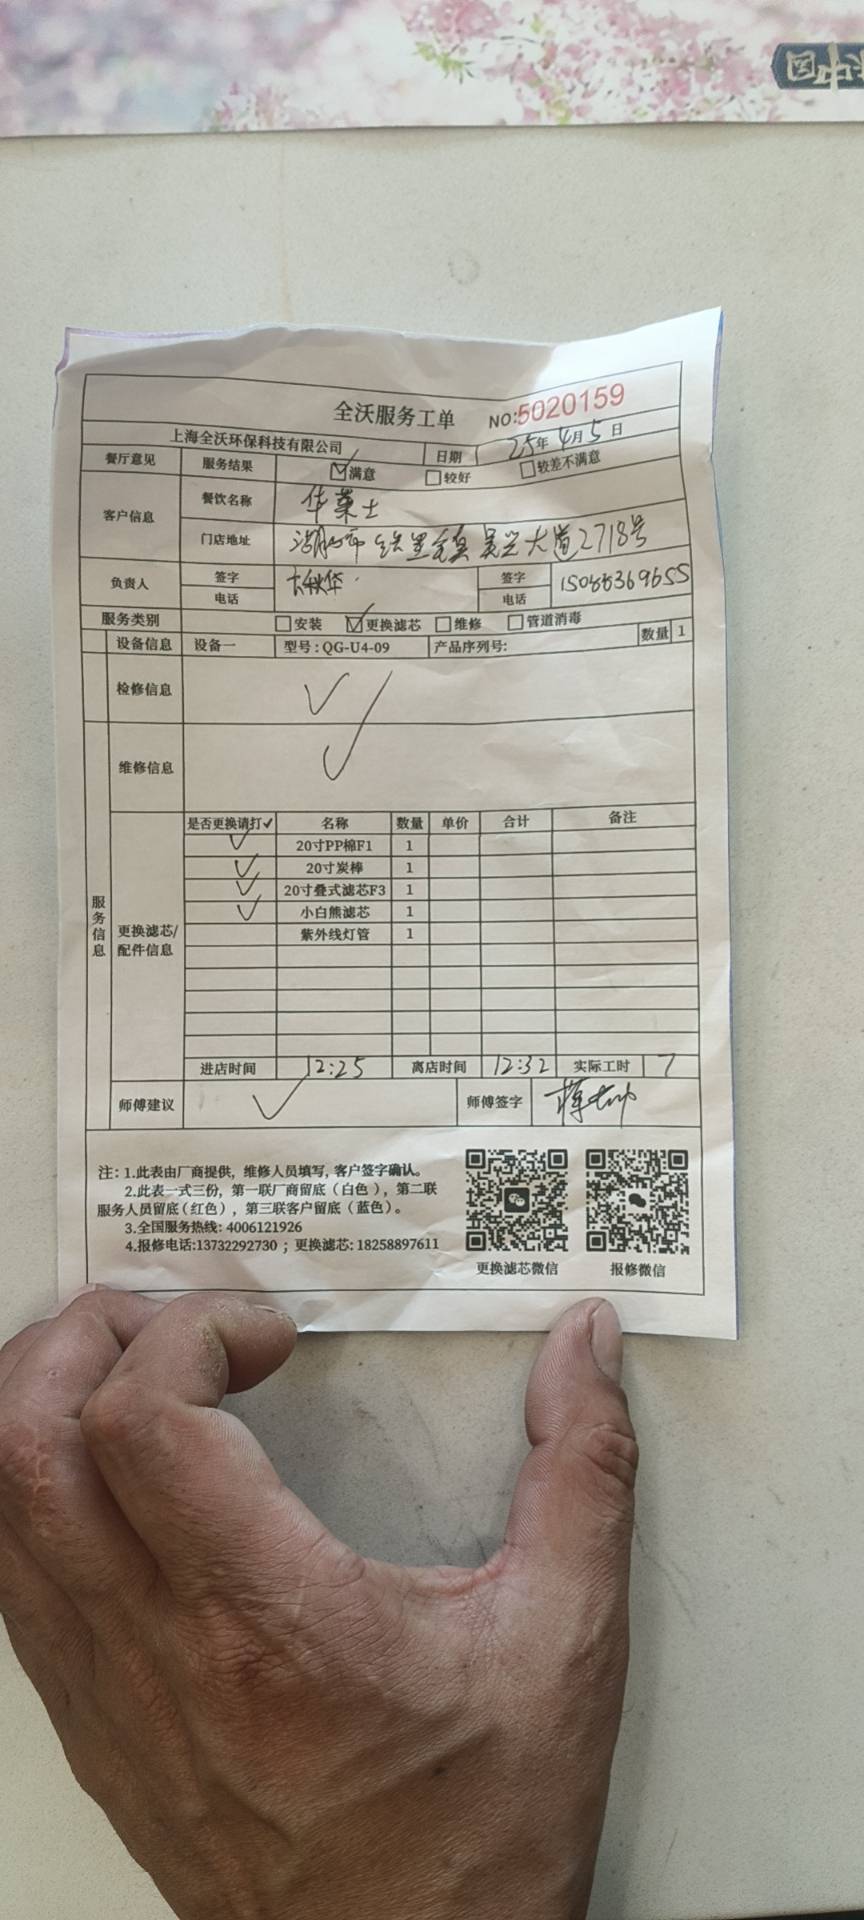 中国
全沃服务工单 NO:5020159
上海全沃环保科技有限公司 日期 25年4月5日
餐厅意见 服务结果 ☑满意 □较好 □较差不满意
客户信息 餐饮名称 华莱士
门店地址 湖州市 织里镇 吴兴大道2718号
负责人 签字 签字
电话 电话
服务类别 □安装 ☑更换滤芯 □维修 □管道消毒
设备信息 设备一 型号:QG-U4-09 产品序列号: 数量 1
检修信息 ✓
维修信息 ✓
服务信息
更换滤芯/配件信息
是否更换请打✓ 名称 数量 单价 合计 备注
✓ 20寸PP棉F1 1
✓ 20寸炭棒 1
✓ 20寸叠式滤芯F3 1
✓ 小白熊滤芯 1
紫外线灯管 1
进店时间 12:25 离店时间 12:32 实际工时 7
师傅建议 ✓ 师傅签字
注: 1.此表由厂商提供, 维修人员填写, 客户签字确认。
2.此表一式三份, 第一联厂商留底(白色), 第二联
服务人员留底(红色), 第三联客户留底(蓝色)。
3.全国服务热线: 4006121926
4.报修电话:13732292730 ; 更换滤芯: 18258897611
更换滤芯微信 报修微信